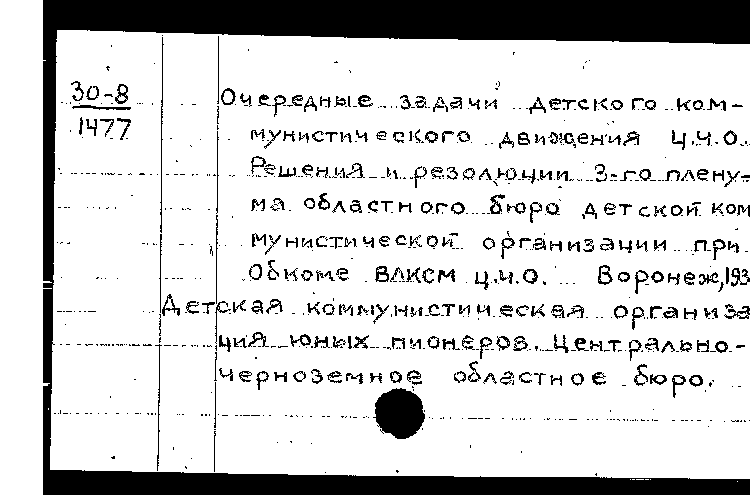 30-8
1477
Очередные задачи детского ком-
мунистического движения Ц.Ч.О.
Решения и резолюции 3-го плену-
ма областного бюро детской ком
мунистической организации при
Обкоме ВЛКСМ Ц.Ч.О. Воронеж, 193
Детская коммунистическая организа
ция юных пионеров. Центрально-
черноземное областное бюро.